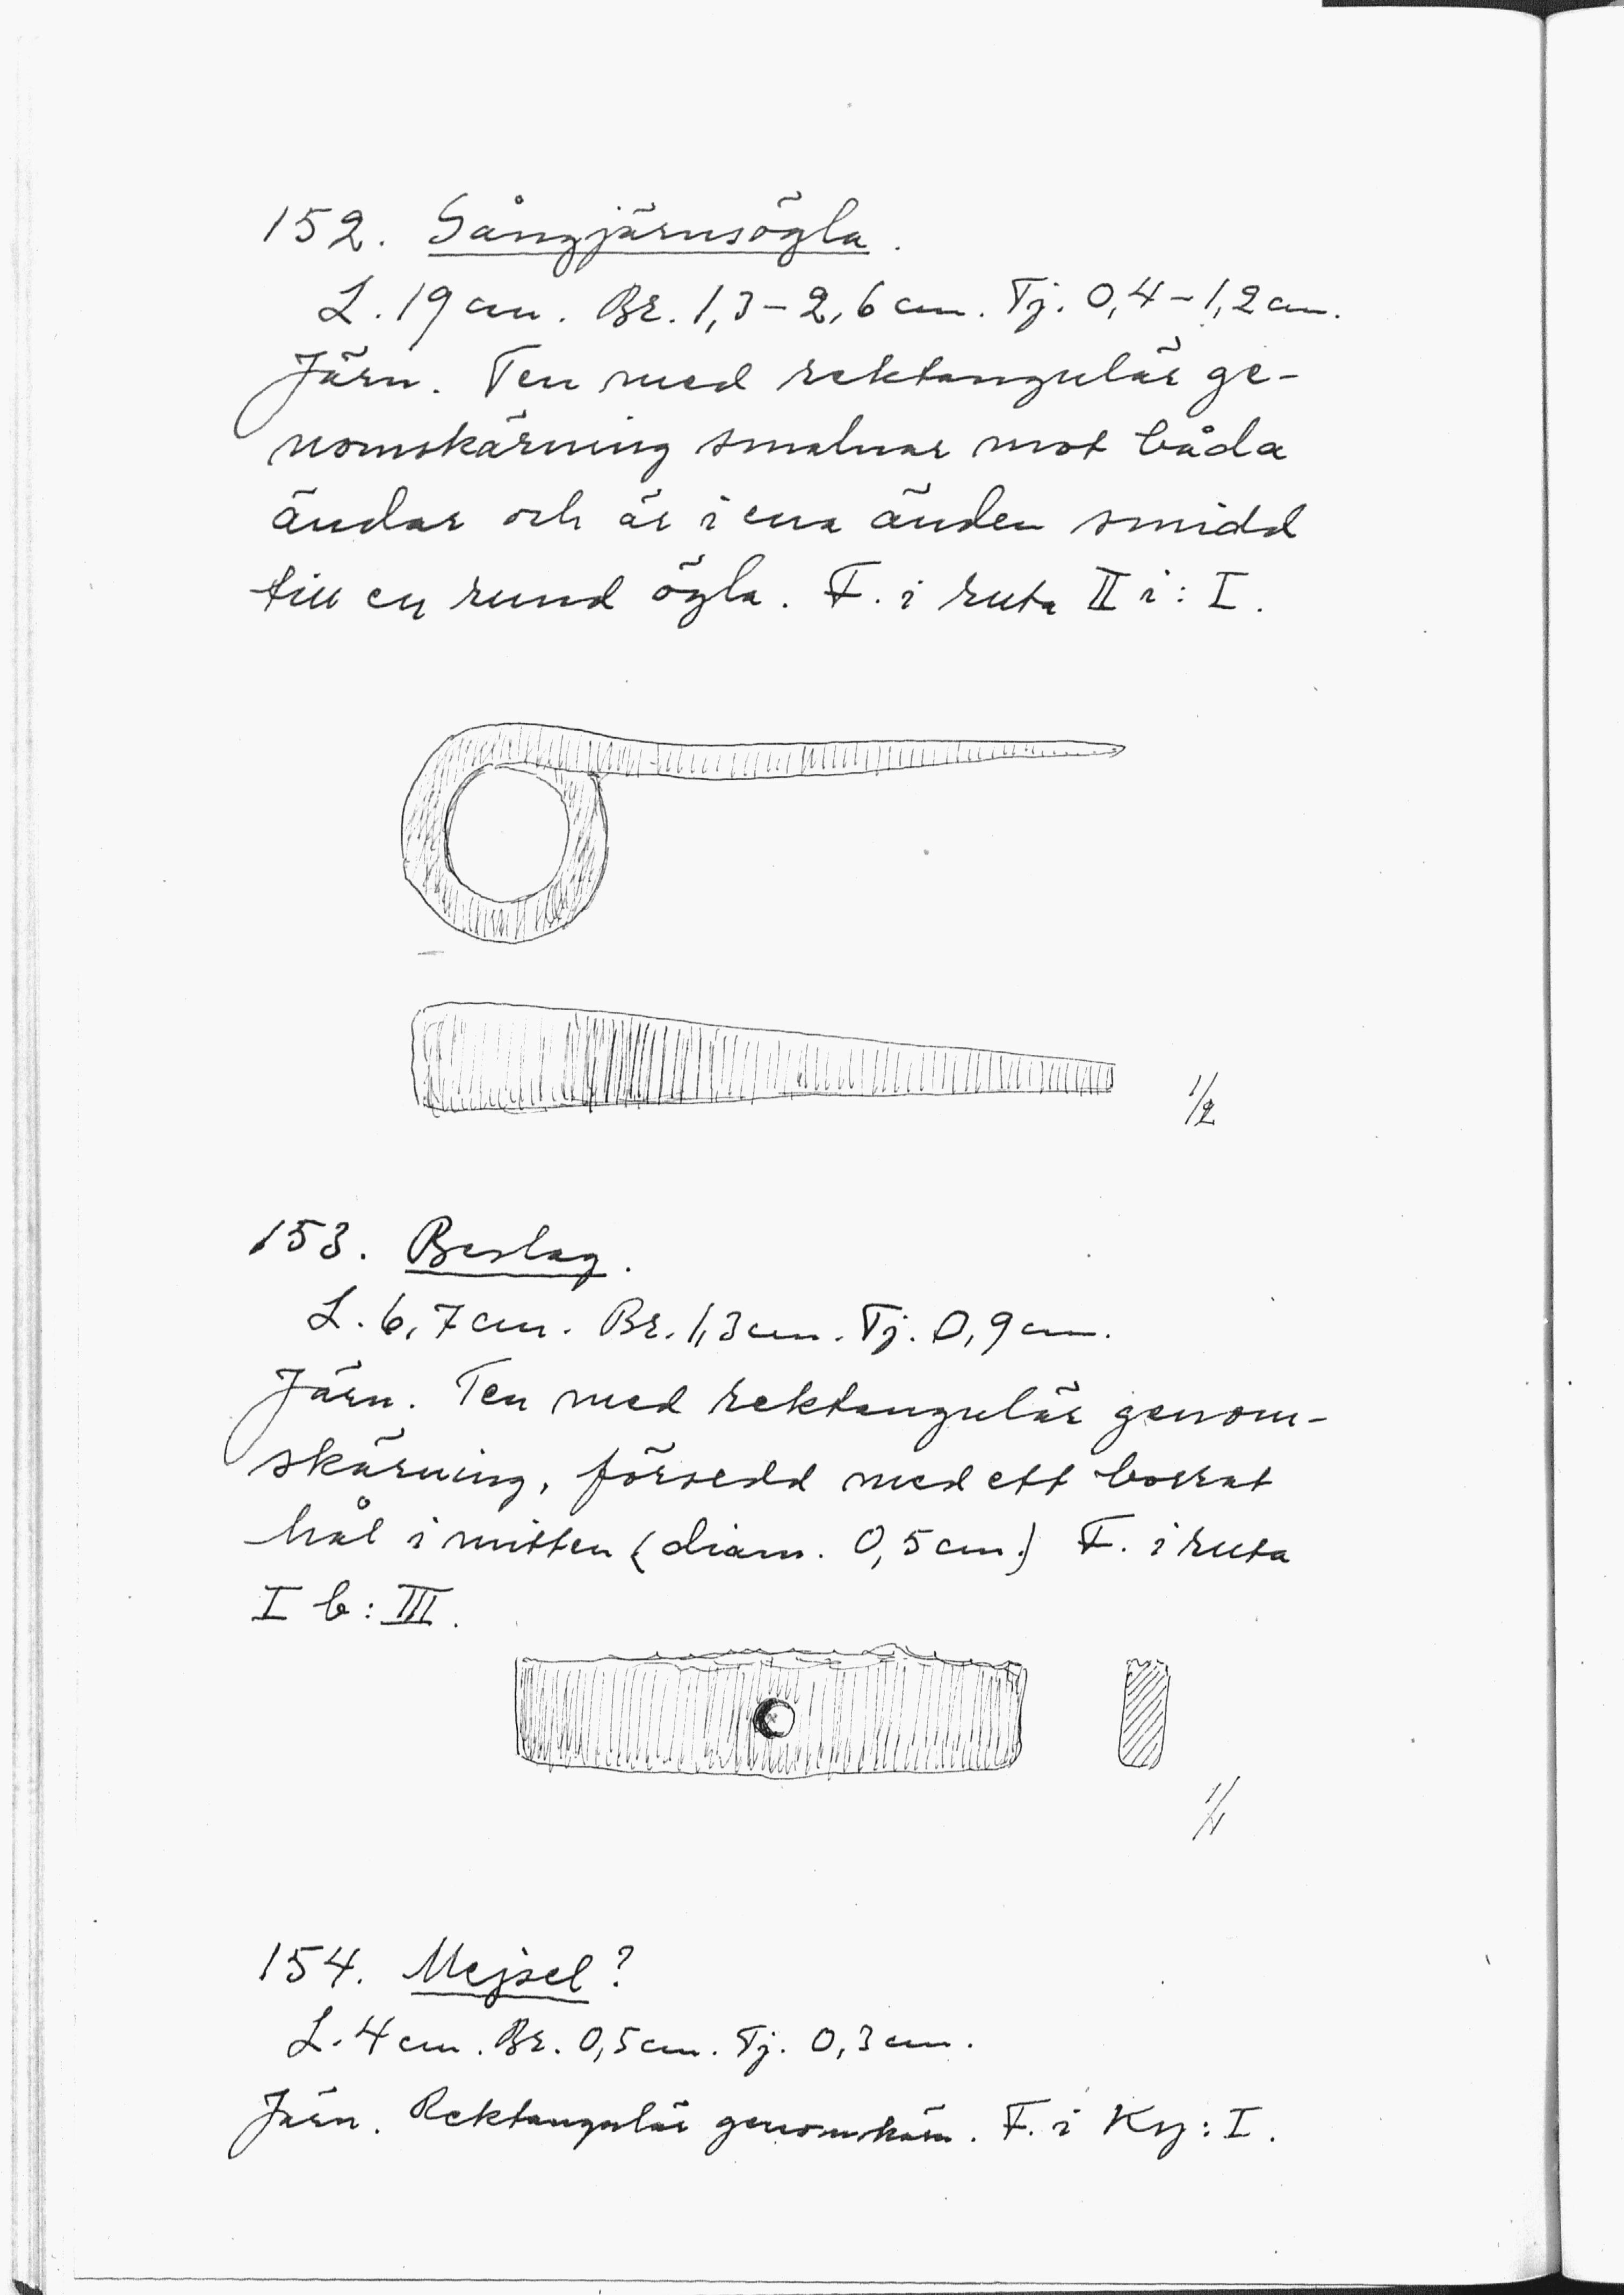 152. Sångjärnsögla.
L. 19 cm. Br. 1,3-2,6 cm. Tj. 0,4-1,2 cm.
Järn. Ten med rektangulär ge-
nomskärning smalnar mot båda
ändar och är i ena änden smidd
till en rund ögla. F. i ruta II i: I.
1/2
153. Beslag.
L. 6,7 cm. Br. 1,3 cm. Tj. 0,9 cm.
Järn. Ten med rektangulär genom-
skärning, försedd med ett borrat
hål i mitten (diam. 0,5 cm.) F. i ruta
I b: III.
1/1
154. Mejsel?
L. 4 cm. Br. 0,5 cm. Tj. 0,3 cm.
Järn. Rektangulär genomskärn. F. i : I.